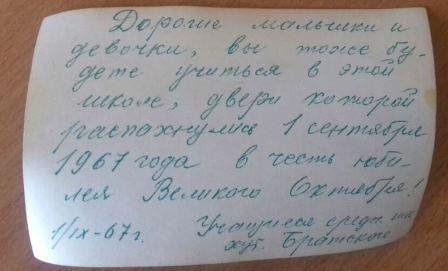 Дорогие мальчики и
девочки, вы тоже бу-
дете учиться в этой
школе, двери которой
распахнулись 1 сентября
1967 года в честь юби-
лея Великого Октября!
1/IX-67г. Учащиеся средн. шк.
хут. Братского